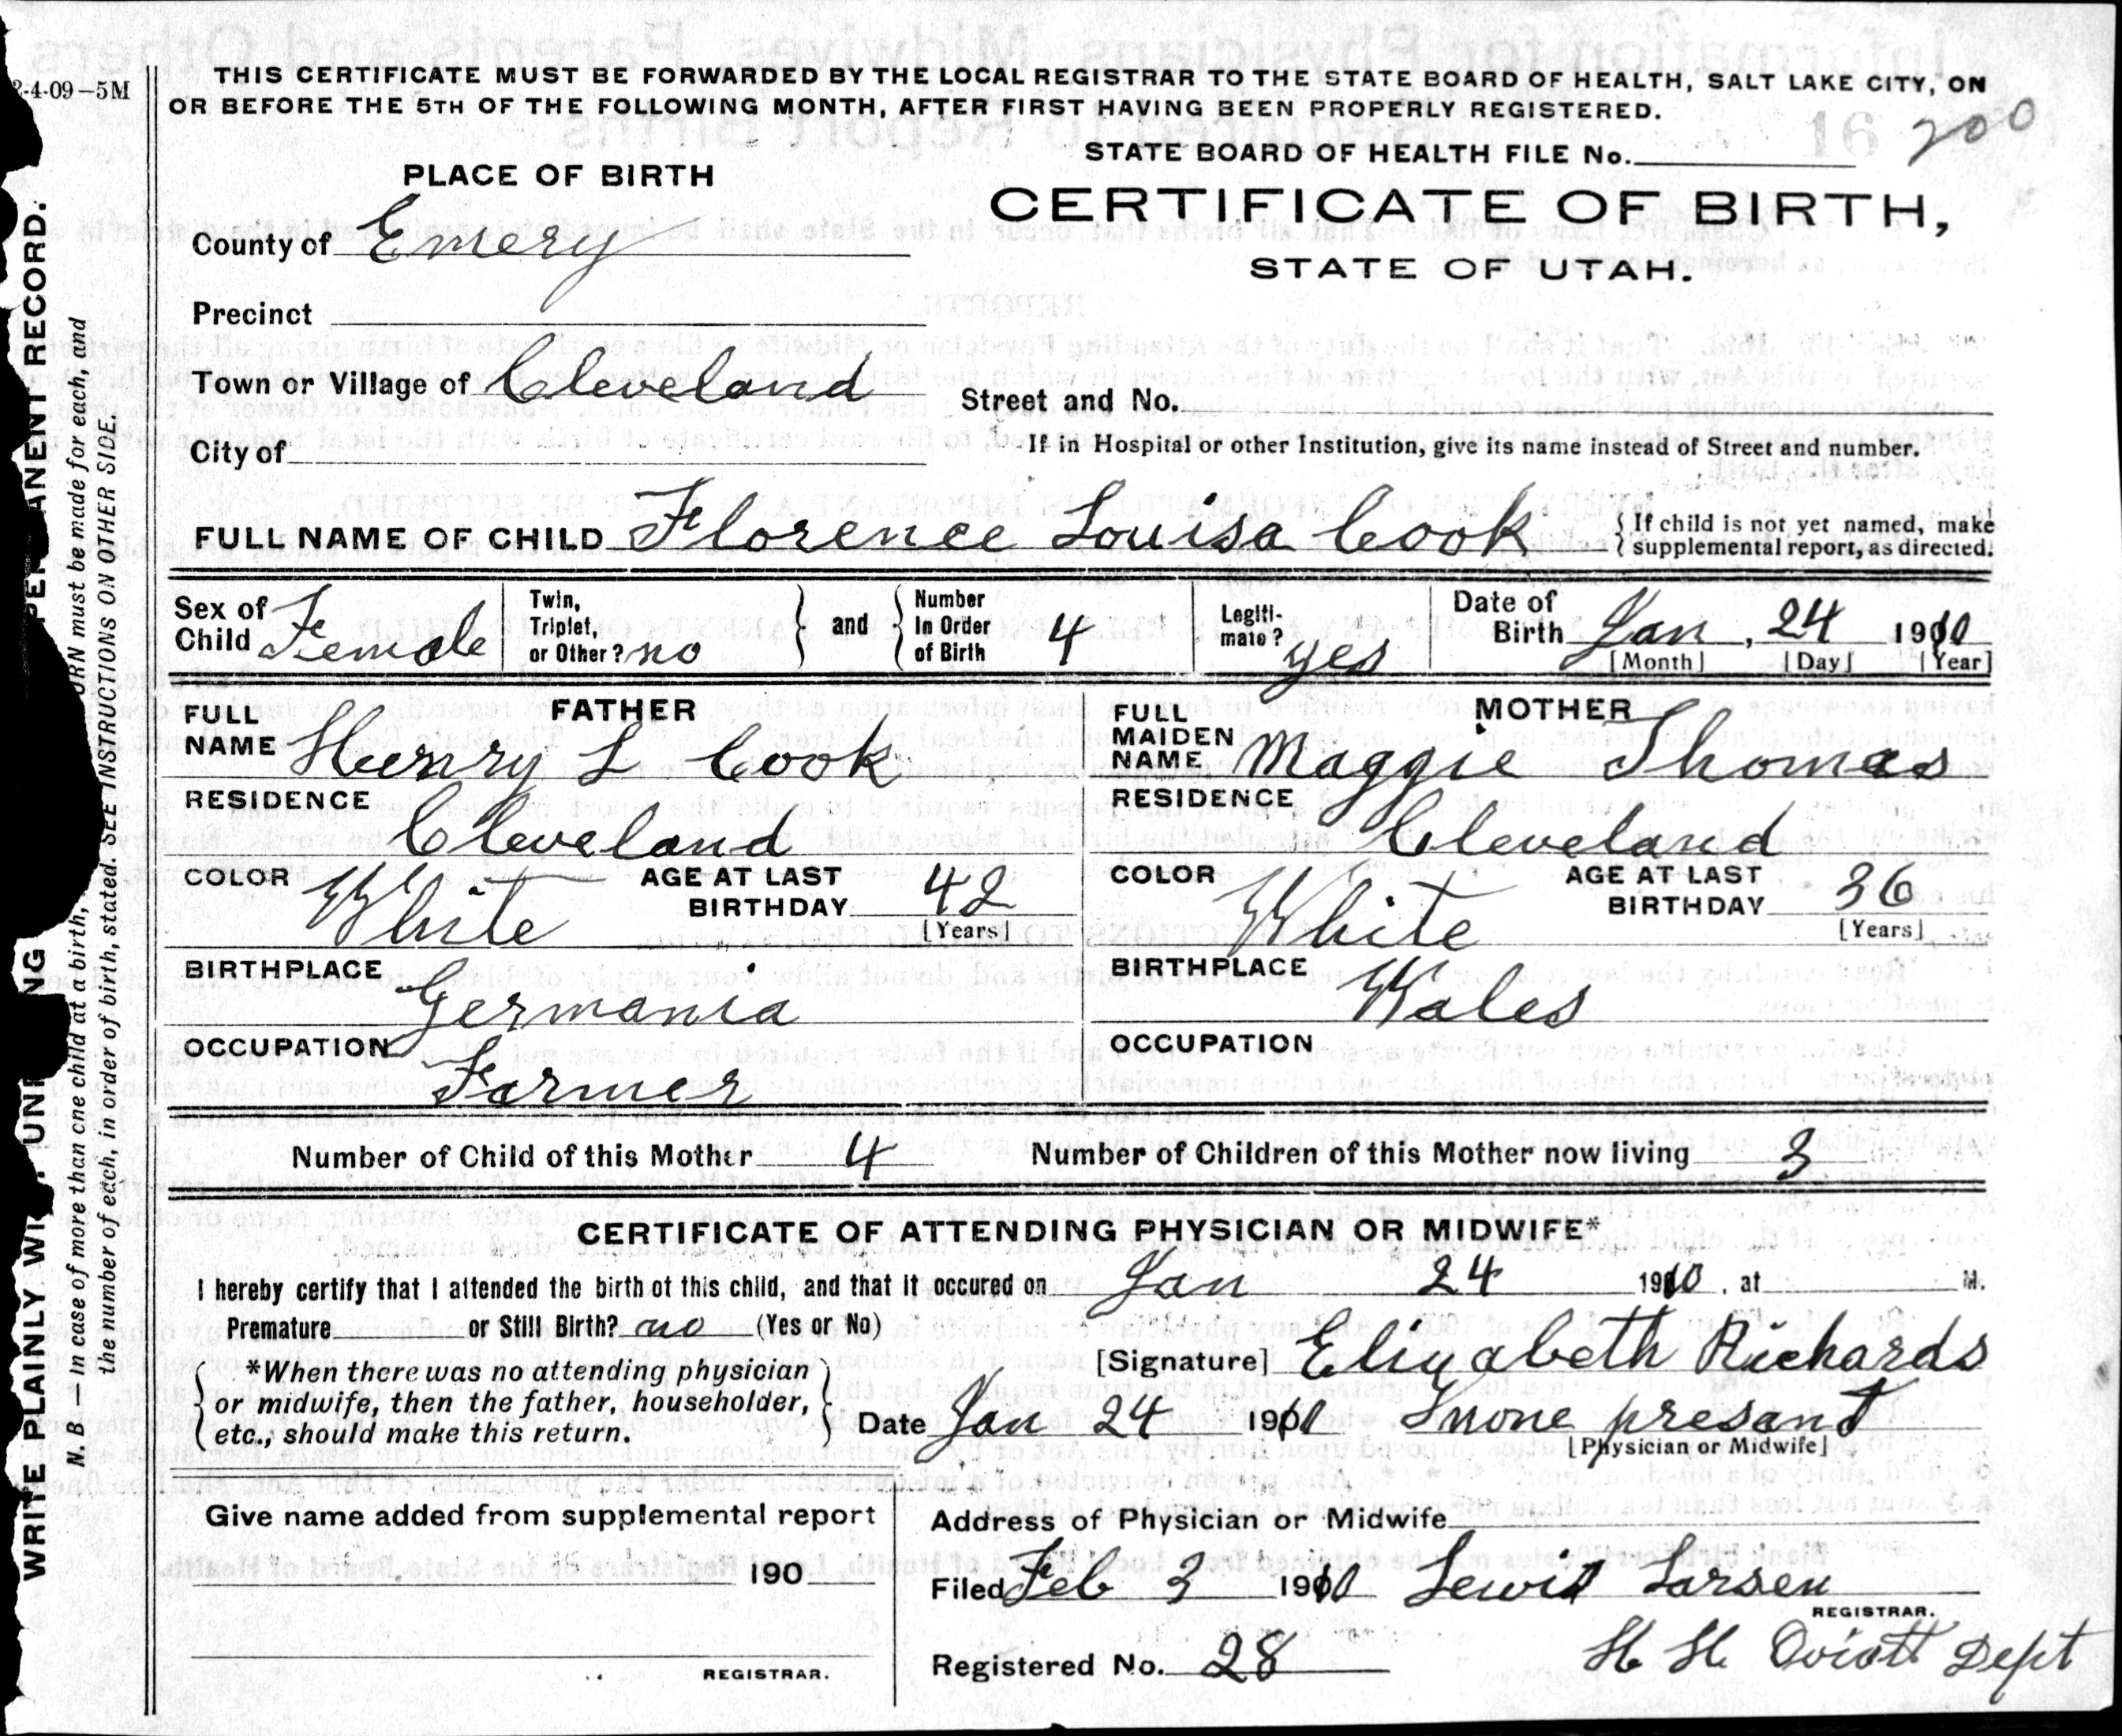 2-4-09-5M
THIS CERTIFICATE MUST BE FORWARDED BY THE LOCAL REGISTRAR TO THE STATE BOARD OF HEALTH, SALT LAKE CITY, ON
OR BEFORE THE 5TH OF THE FOLLOWING MONTH, AFTER FIRST HAVING BEEN PROPERLY REGISTERED.
16 200
STATE BOARD OF HEALTH FILE No.
PLACE OF BIRTH
CERTIFICATE OF BIRTH,
STATE OF UTAH.
County of Emery
Precinct
Town or Village of Cleveland
Street and No.
City of
If in Hospital or other Institution, give its name instead of Street and number.
FULL NAME OF CHILD Florence Louisa Cook { If child is not yet named, make
supplemental report, as directed.
Sex of Child Female
Twin, Triplet, or Other? no } and { Number In Order of Birth 4
Legiti-mate? yes
Date of Birth Jan, 24 1910
[Month] [Day] [Year]
FATHER
FULL NAME Henry L Cook
RESIDENCE
Cleveland
COLOR White AGE AT LAST BIRTHDAY 42
[Years]
BIRTHPLACE
Germania
OCCUPATION
Farmer
MOTHER
FULL MAIDEN NAME Maggie Thomas
RESIDENCE
Cleveland
COLOR White AGE AT LAST BIRTHDAY 36
[Years]
BIRTHPLACE
Wales
OCCUPATION
Number of Child of this Mother 4 Number of Children of this Mother now living 3
CERTIFICATE OF ATTENDING PHYSICIAN OR MIDWIFE*
I hereby certify that I attended the birth of this child, and that it occured on Jan 24 1910, at M.
Premature or Still Birth? no (Yes or No)
[Signature] Elizabeth Richards
{ *When there was no attending physician
or midwife, then the father, householder,
etc., should make this return. }
Date Jan 24 1901 Inone presant
[Physician or Midwife]
Give name added from supplemental report
190
REGISTRAR.
Address of Physician or Midwife
Filed Feb 3 1910 Lewis Larsen
REGISTRAR.
Registered No. 28 H H Oviatt Dept
WRITE PLAINLY WI UN NG PE ANENT RECORD.
N. B.—In case of more than one child at a birth, URN must be made for each, and
the number of each, in order of birth, stated. SEE INSTRUCTIONS ON OTHER SIDE.